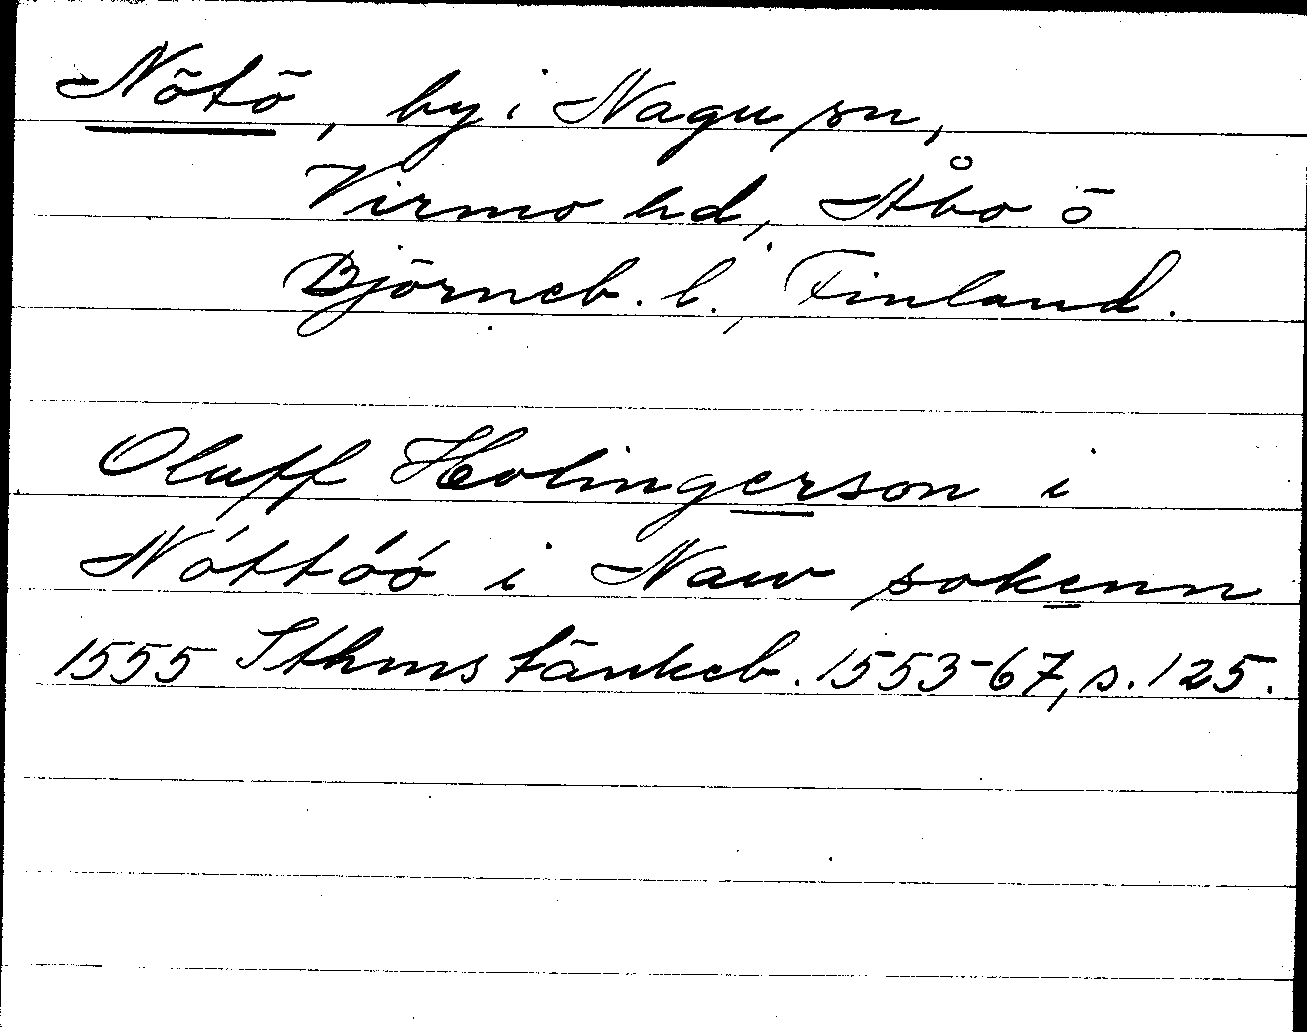 Nötö, by i Nagu sn,
Virmo hd, Åbo o
Björneb. l., Finland.
Oluff Holingerson i
Nóttóó i Naw sokenn
1555 Sthms tänkeb. 1553-67, s. 125.